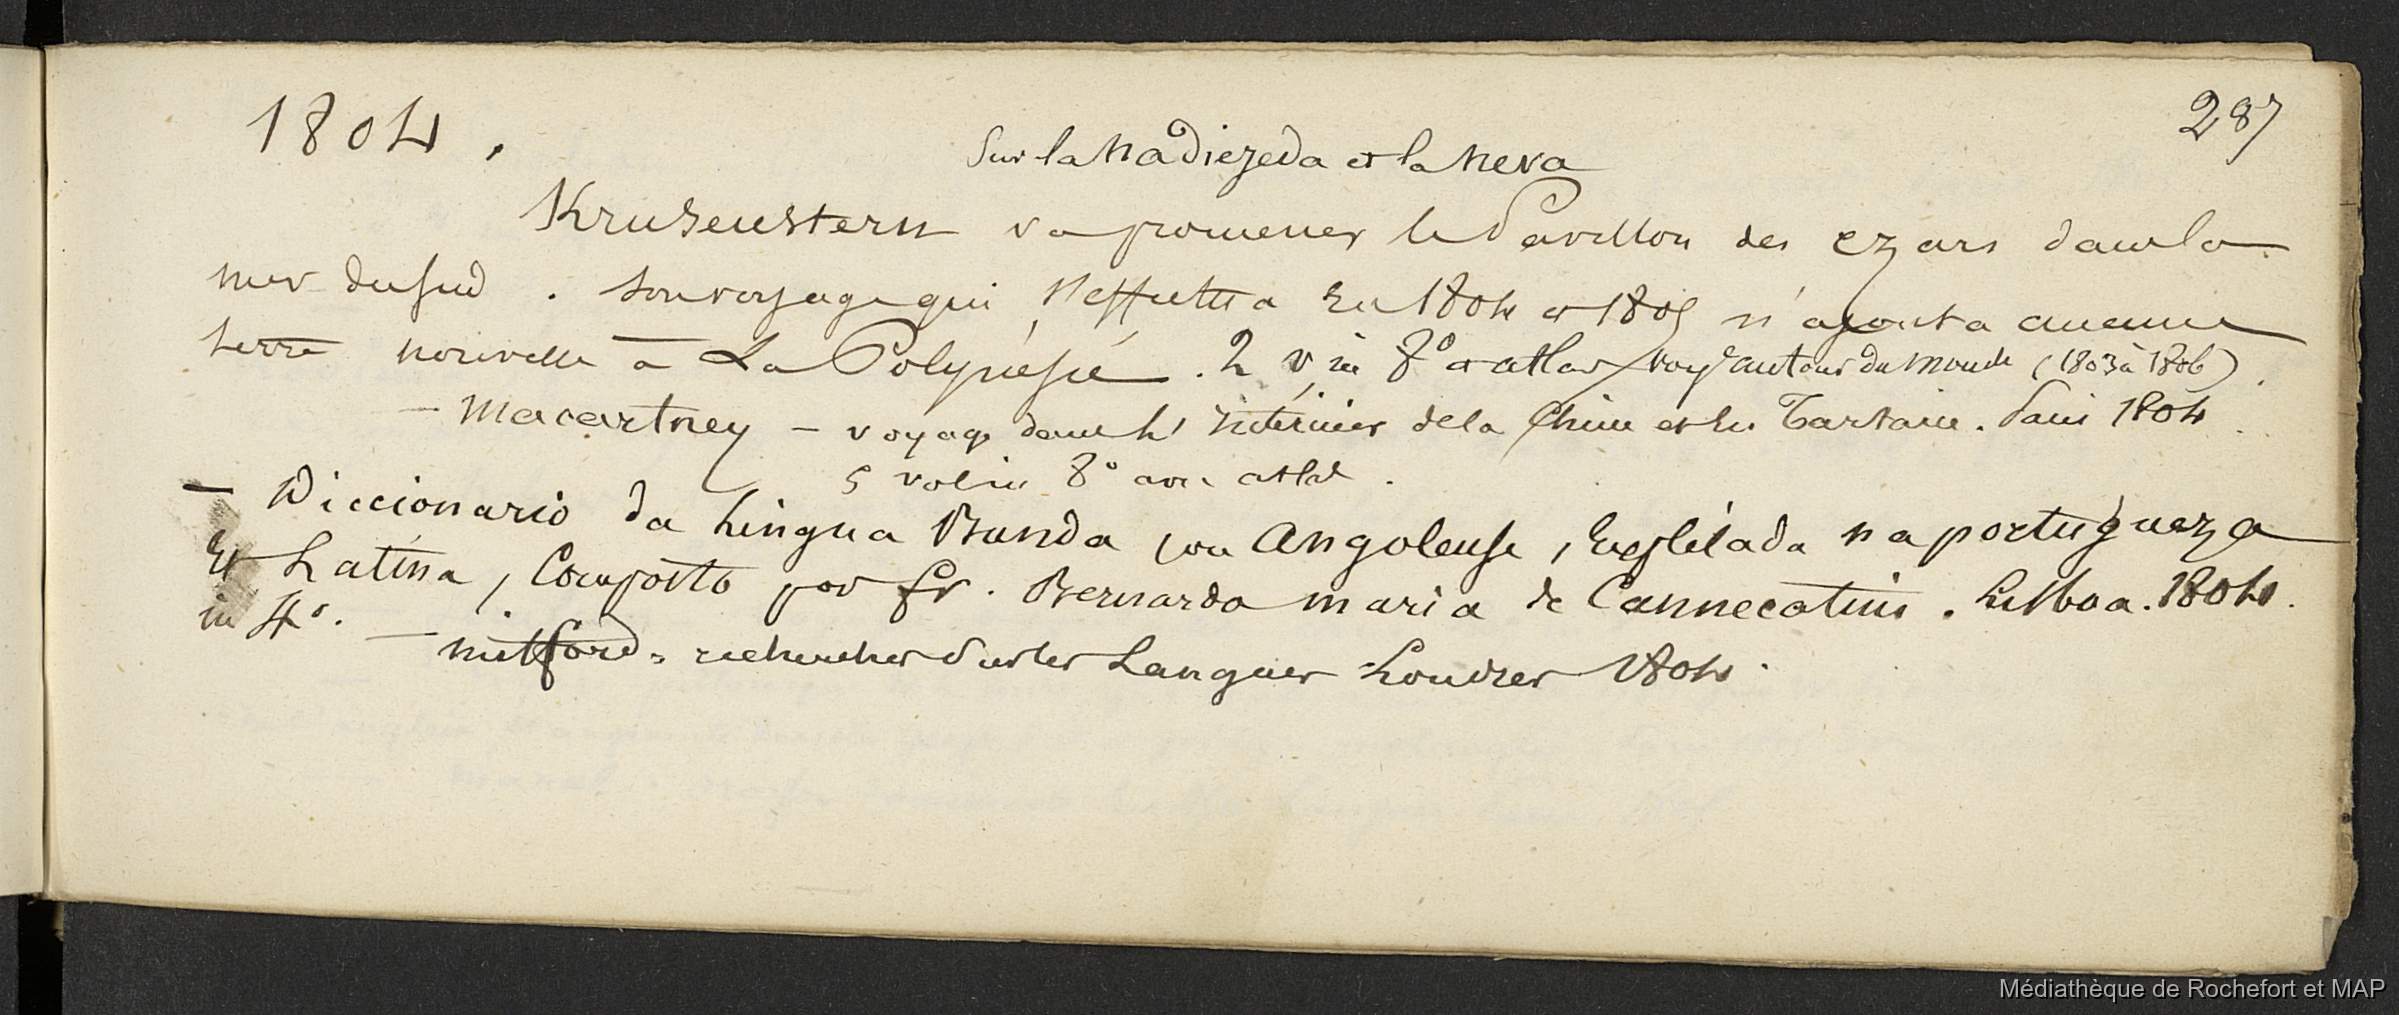 1804.
287
Sur la Nadiezeda et la Neva
Krusenstern va promener le Pavillon des czars dans la
mer du sud. Son voyage qui s'effectua en 1804 et 1805 n'ajouta aucune
terre nouvelle à La Polynésie. 2 v in 8° et atlas voy. autour du monde (1803 à 1806).
— Macartney — voyage dans l'intérieur de la Chine et en Tartarie. Paris 1804.
5 vol in 8° avec atlas.
— Diccionario da Lingua Bunda, ou Angolense, explicada na portugueza
et Latina, Composto por fr. Bernardo maria de Cannecatim. Lisboa. 1804.
in 4°.
— mitford = recherches sur les Langues Londres 1804.
Médiathèque de Rochefort et MAP